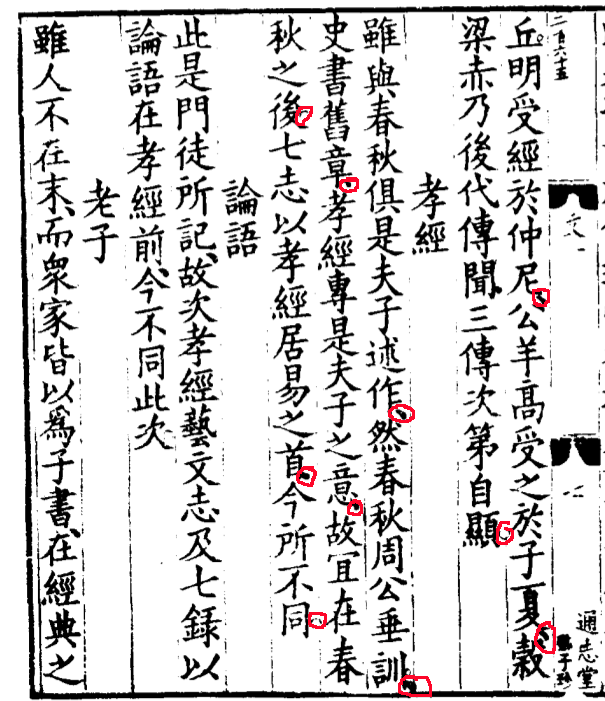 二百六十五
通志堂
丘明受經於仲尼公羊高受之於子夏穀
梁赤乃後代傳聞三傳次第自顯
孝經
雖與春秋俱是夫子述作然春秋周公垂訓
史書舊章孝經專是夫子之意故宜在春
秋之後七志以孝經居易之首今所不同
論語
此是門徒所記故次孝經藝文志及七錄以
論語在孝經前今不同此次
老子
雖人不在末而衆家皆以爲子書在經典之